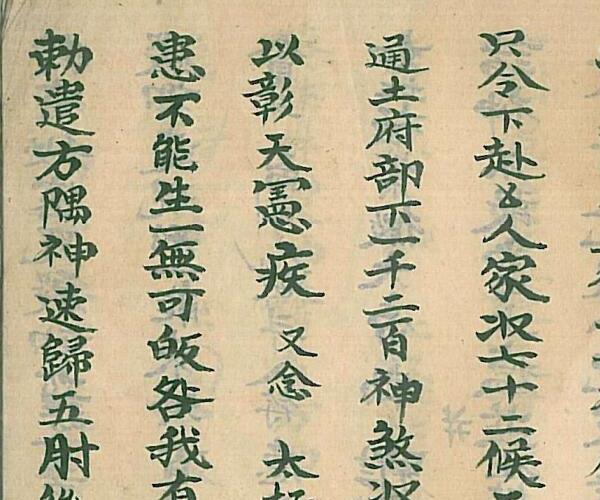 只令下赴厶人家収七十二候
通土府部下一千二百神煞収
以彰天憲疾又念太
患不能生一無可皈咎我有
勅遣方隅神速歸五肘